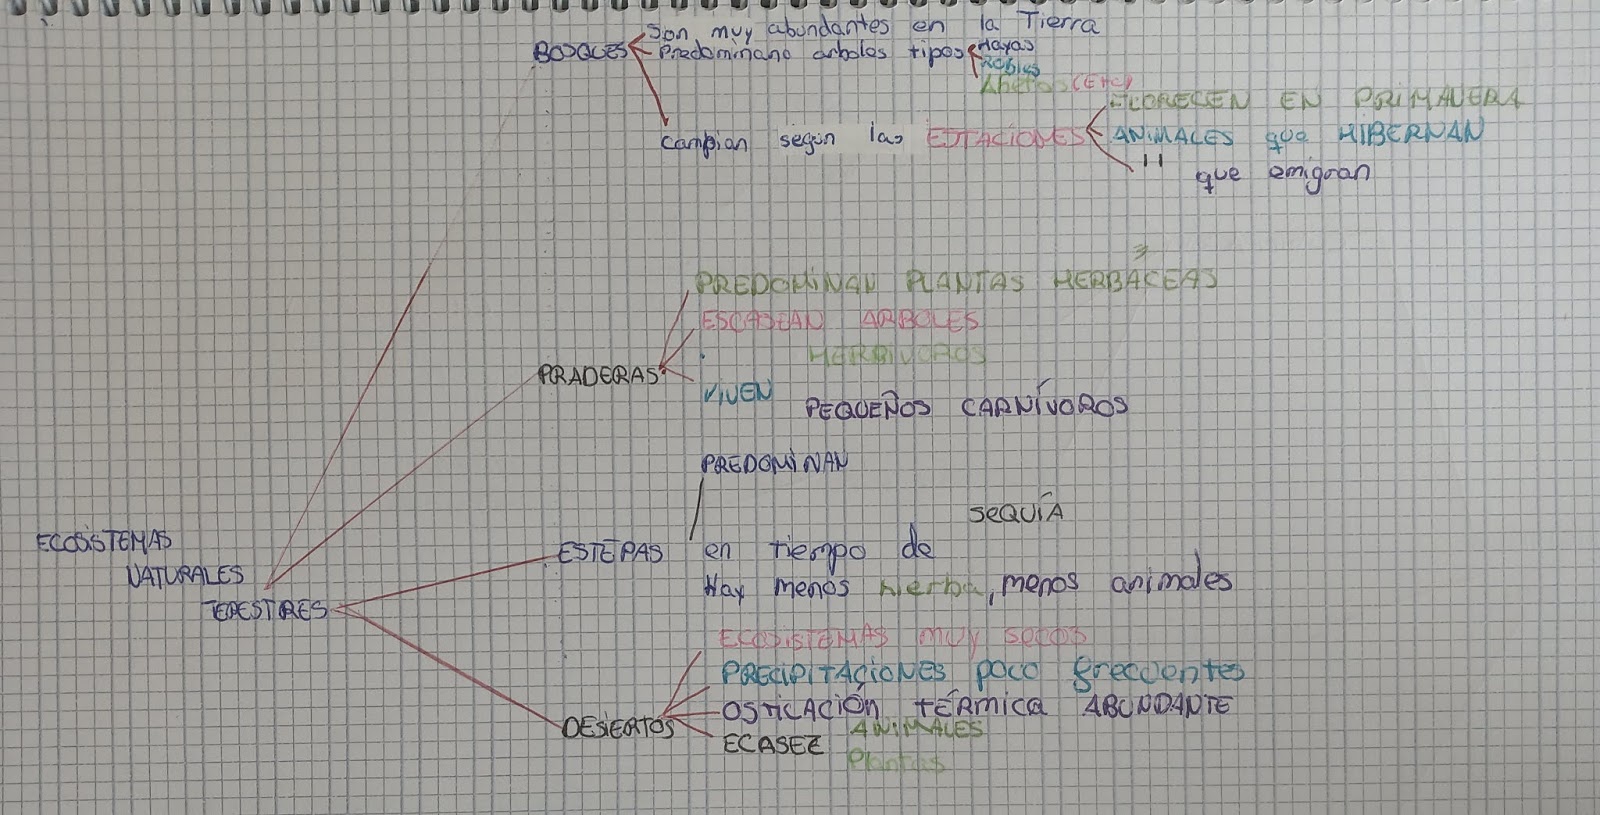 Son muy abundantes en la Tierra
BOSQUES Predominano arboles tipos Hayas
Robles
Abetos (Etc)
FLORECEN EN PRIMAVERA
cambian según las ESTACIONES ANIMALES que HIBERNAN
" que emigran
PREDOMINAN PLANTAS HERBÁCEAS
ESCASEAN ARBOLES
HERBIVOROS
PRADERAS
VIVEN
PEQUEÑOS CARNÍVOROS
PREDOMINAN
SEQUÍA
ECOSISTEMAS
ESTEPAS en tiempo de
NATURALES
Hay menos hierba, menos animales
TERESTRES
ECOSISTEMAS muy secos
PRECIPITACIONES poco frecuentes
OSTICACIÓN TÉRMICA ABUNDANTE
DESIERTOS
ECASEZ ANIMALES
Plantas